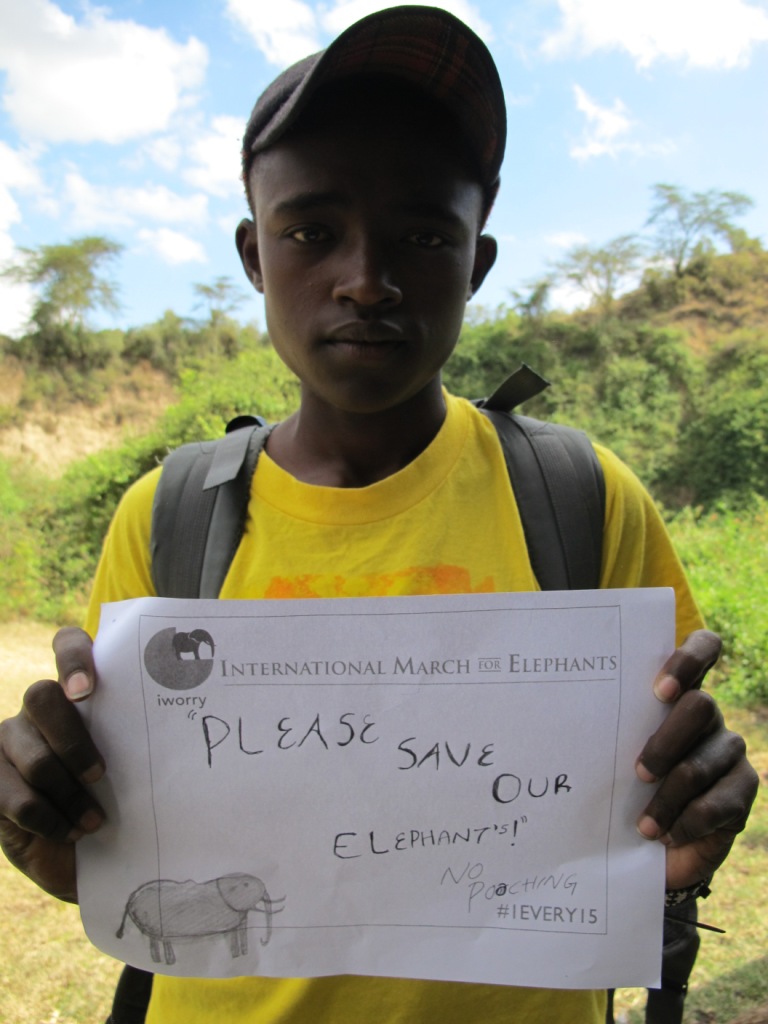 INTERNATIONAL MARCH FOR ELEPHANTS
iworry
"PLEASE SAVE
OUR
ELEPHANT'S!"
NO
POACHING
#1EVERY15